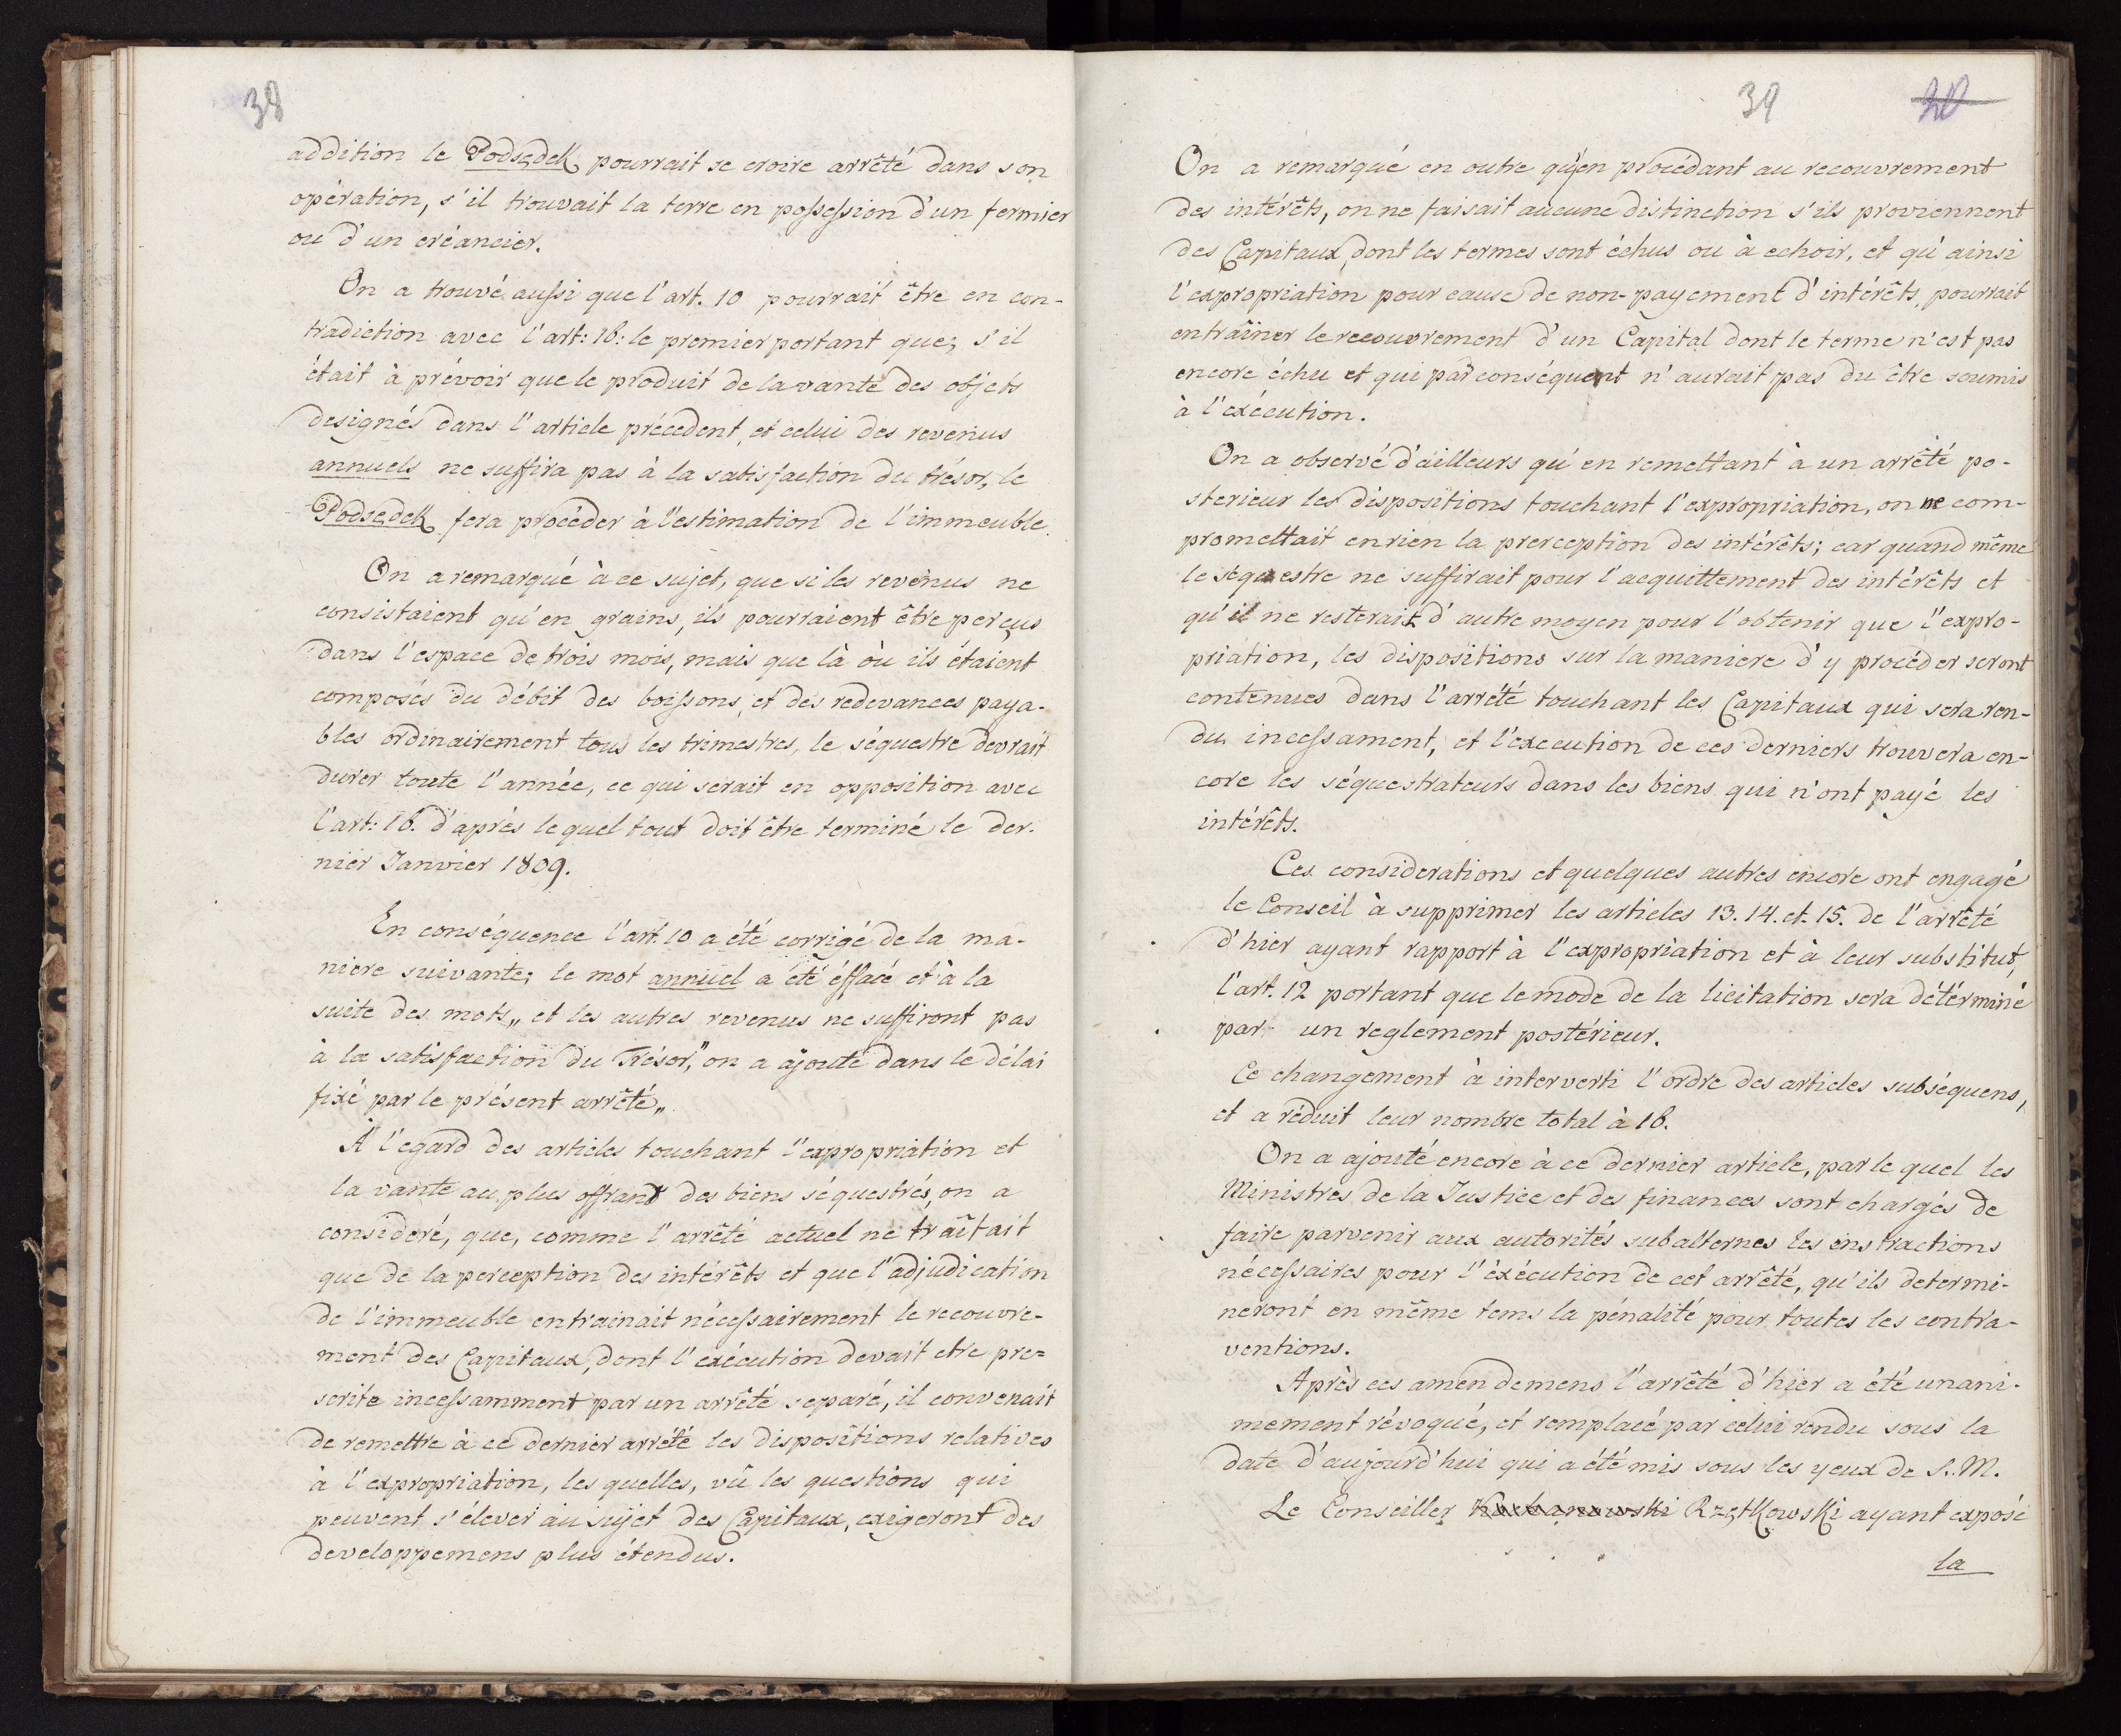 38
addition le Podsędek pourrait se croire arrêté dans son
opération, s'il trouvait la terre en possession d'un fermier
ou d'un créancier.
On a trouvé aussi que l'art. 10 pourrait être en con-
tradiction avec l'art: 16: le premier portant que, s'il
était à prévoir que le produit de la vante des objets
designés dans l'article précedent, et celui des revenus
annuels ne suffira pas à la satisfaction du trésor, le
Podsędek fera procéder à l'estimation de l'immeuble.
On a remarqué à ce sujet, que si les revenus ne
consistaient qu'en grains, ils pourraient être perçus
dans l'espace de trois mois, mais que là où ils étaient
composés du débit des boissons, et des redevances paya-
bles ordinairement tous les trimestres, le séquestre devrait
durer toute l'année, ce qui serait en opposition avec
l'art: 16. d'après lequel tout doit être terminé le der-
nier Janvier 1809.
En conséquence l'art. 10 a été corrigé de la ma-
niere suivante; le mot annuel a été éffacé et à la
suite des mots „ et les autres revenus ne suffiront pas
à la satisfaction du Trésor," on a ajouté dans le délai
fixé par le présent arrêté„
A l'egard des articles touchant l'expropriation et
la vante au plus offrant des biens séquestrés, on a
consideré, que, comme l'arrêté actuel ne traîtait
que de la perception des intérêts et que l'adjudication
de l'immeuble entrainait nécessairement le recouvre-
ment des Capitaux, dont l'exécution devait etre pre=
scrite incessamment par un arrêté separé, il convenait
de remettre à ce dernier arrêté les dispositions relatives
à l'expropriation, les quelles, vû les questions qui
peuvent s'élever au sujet des Capitaux, exigeront des
developpemens plus étendus.
39 30
On a remarqué en outre qu'en procédant au recouvrement
des intérêts, on ne faisait aucune distinction s'ils proviennent
des Capitaux, dont les termes sont échus ou à echoir, et qu'ainsi
l'expropriation pour cause de non-payement d'intérêts, pourrait
entraîner le recouvrement d'un Capital dont le terme n'est pas
encore échu et qui par conséquent n'aurait pas du être soumis
à l'exécution.
On a observé d'ailleurs qu'en remettant à un arrêté po-
sterieur les dispositions touchant l'expropriation, on ne com-
promettait en rien la prerception des intérêts; car quand même
le séquestre ne suffirait pour l'acquittement des intérêts et
qu'il ne resterait d'autre moyen pour l'obtenir que l'expro-
priation, les dispositions sur la maniere d'y procéder seront
contenues dans l'arrêté touchant les Capitaux qui sera ren-
du incessament, et l'execution de ces derniers trouvera en-
core les séquestrateurs dans les biens qui n'ont payé les
intérêts.
Ces considerations et quelques autres encore ont engagé
le Conseil à supprimer les articles 13. 14. et 15. de l'arrêté
d'hier ayant rapport à l'expropriation et à leur substitut,
l'art. 12 portant que le mode de la licitation sera détérminé
par un reglement postérieur.
Ce changement à interverti l'ordre des articles subséquens,
et a réduit leur nombre total à 16.
On a ajouté encore à ce dernier article, par le quel les
Ministres de la Justice et des finances sont chargés de
faire parvenir aux autorités subalternes les instructions
nécessaires pour l'éxécution de cet arrêté, qu'ils determi-
neront en même tems la pénalité pour toutes les contra-
ventions.
Après ces amendemens l'arrêté d'hier a été unani-
mement révoqué, et remplacé par celui rendu sous la
date d'aujourd'hui qui a été mis sous les yeux de S. M.
Le Conseiller Kochanowski Rzętkowski ayant exposé
la